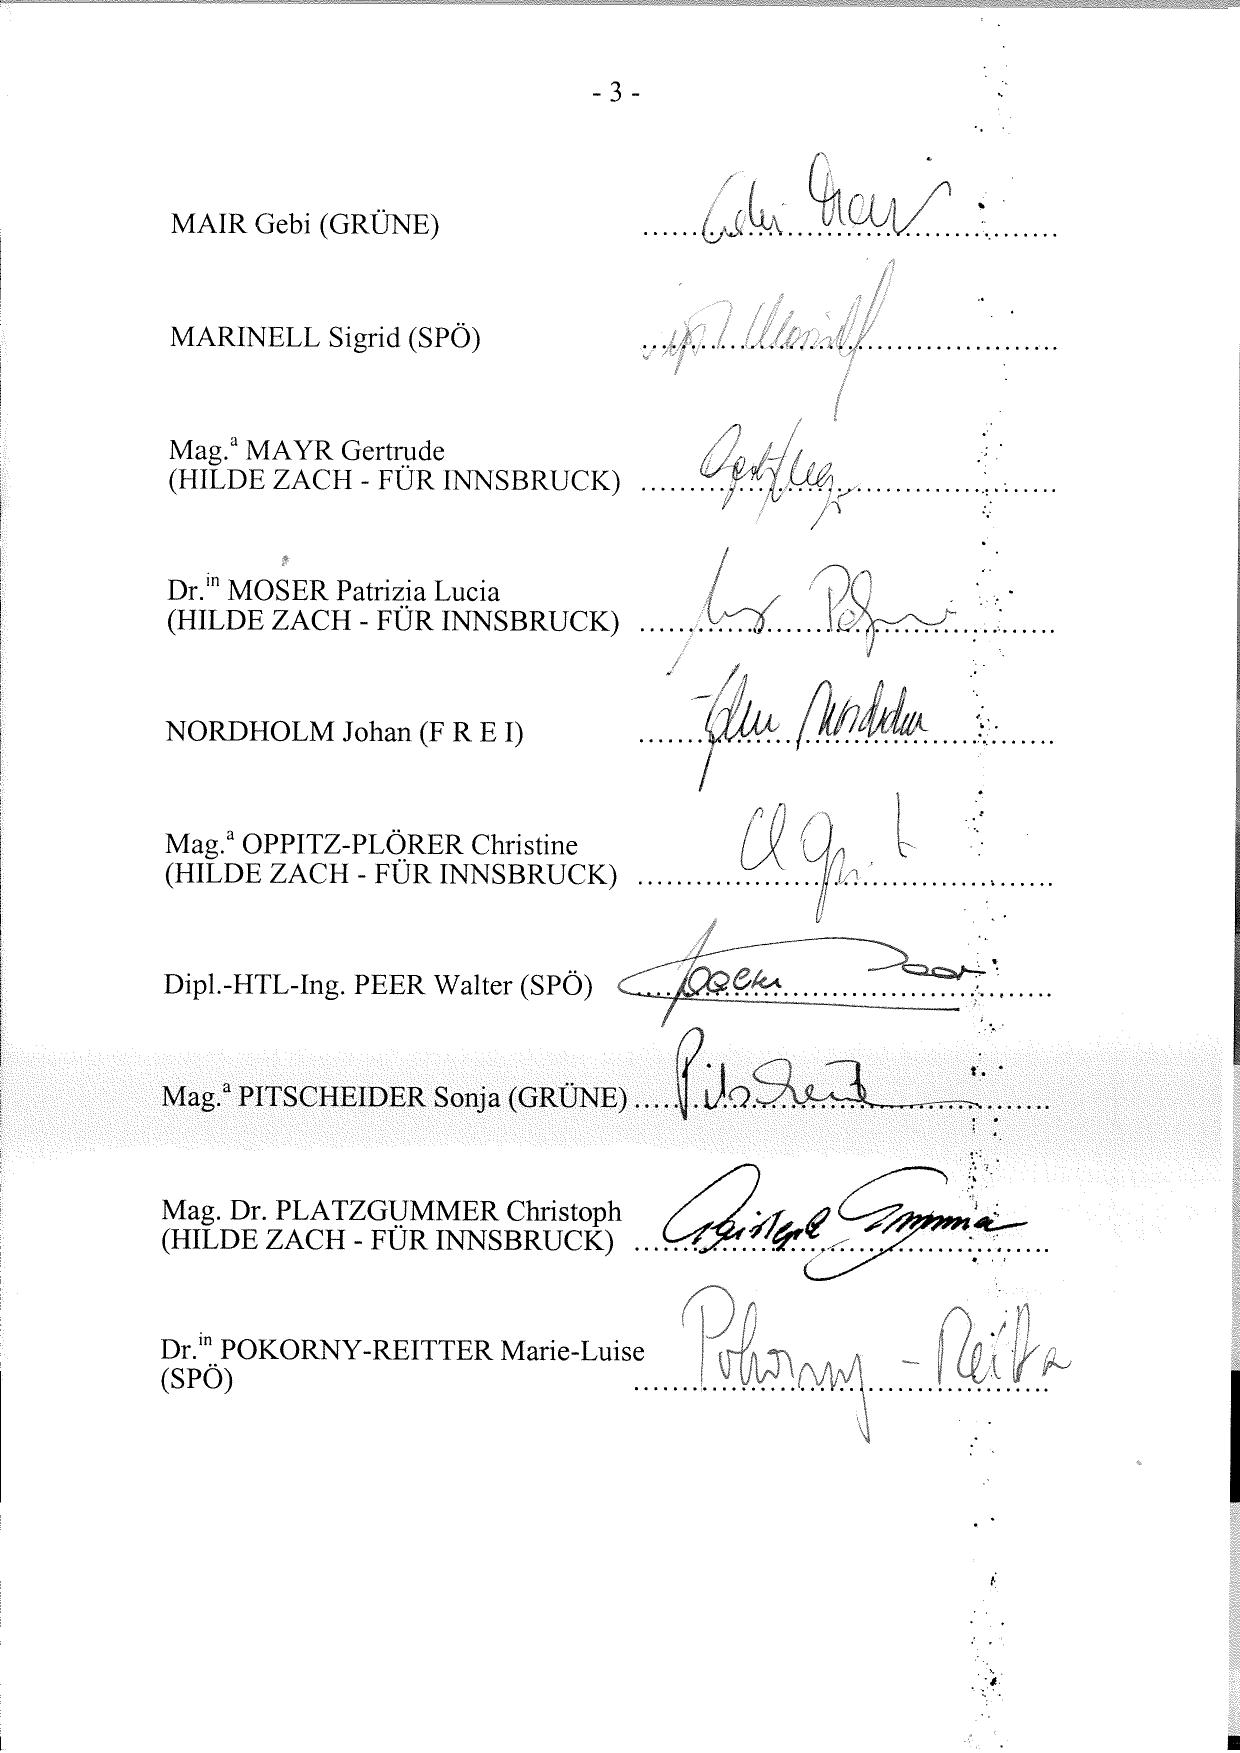 - 3 -
MAIR Gebi (GRÜNE) ..........................................
MARINELL Sigrid (SPÖ) ..........................................
Mag.a MAYR Gertrude
(HILDE ZACH - FÜR INNSBRUCK) ..........................................
Dr.in MOSER Patrizia Lucia
(HILDE ZACH - FÜR INNSBRUCK) ..........................................
NORDHOLM Johan (F R E I) ..........................................
Mag.a OPPITZ-PLÖRER Christine
(HILDE ZACH - FÜR INNSBRUCK) ..........................................
Dipl.-HTL-Ing. PEER Walter (SPÖ) ..........................................
Mag.a PITSCHEIDER Sonja (GRÜNE) ..........................................
Mag. Dr. PLATZGUMMER Christoph
(HILDE ZACH - FÜR INNSBRUCK) ..........................................
Dr.in POKORNY-REITTER Marie-Luise Pokorny - Reitter
(SPÖ) ..........................................